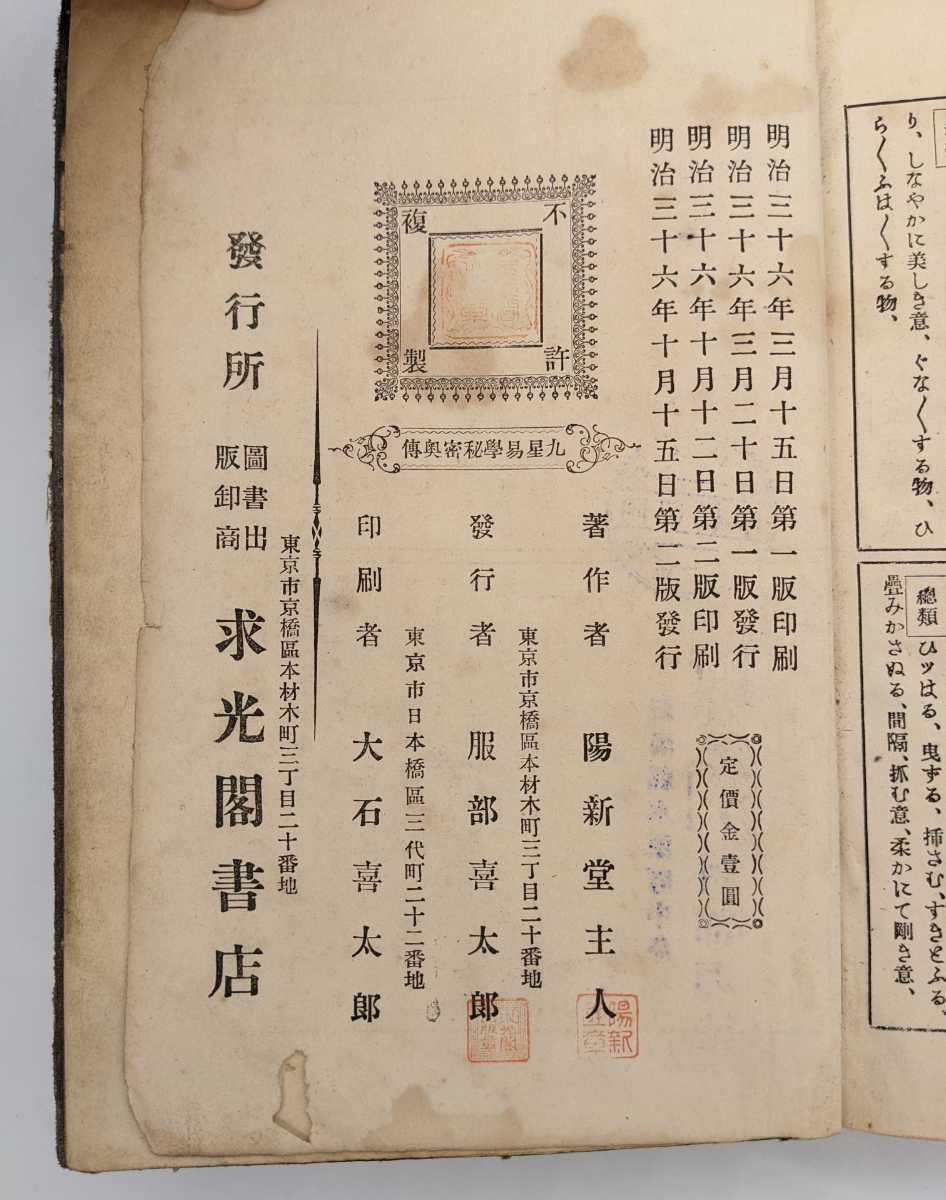 り、しなやかに美しき意、ぐな〱する物、ひ
ら〱ふは〱する物、
總類
ひツはる、曳ずる、挿さむ、すきとふる、
疊みかさぬる、間隔、抓む意、柔かにて剛き意、
明治三十六年三月十五日第一版印刷
明治三十六年三月二十日第一版發行
明治三十六年十月十二日第二版印刷
明治三十六年十月十五日第二版發行
定價金壹圓
不許複製
九星易學秘密奥傳
著作者 陽新堂主人
陽新
東京市京橋區本材木町三丁目二十番地
發行者 服部喜太郎
東京市日本橋區三代町二十二番地
印刷者 大石喜太郎
東京市京橋區本材木町三丁目二十番地
發行所 圖書出版卸商 求光閣書店